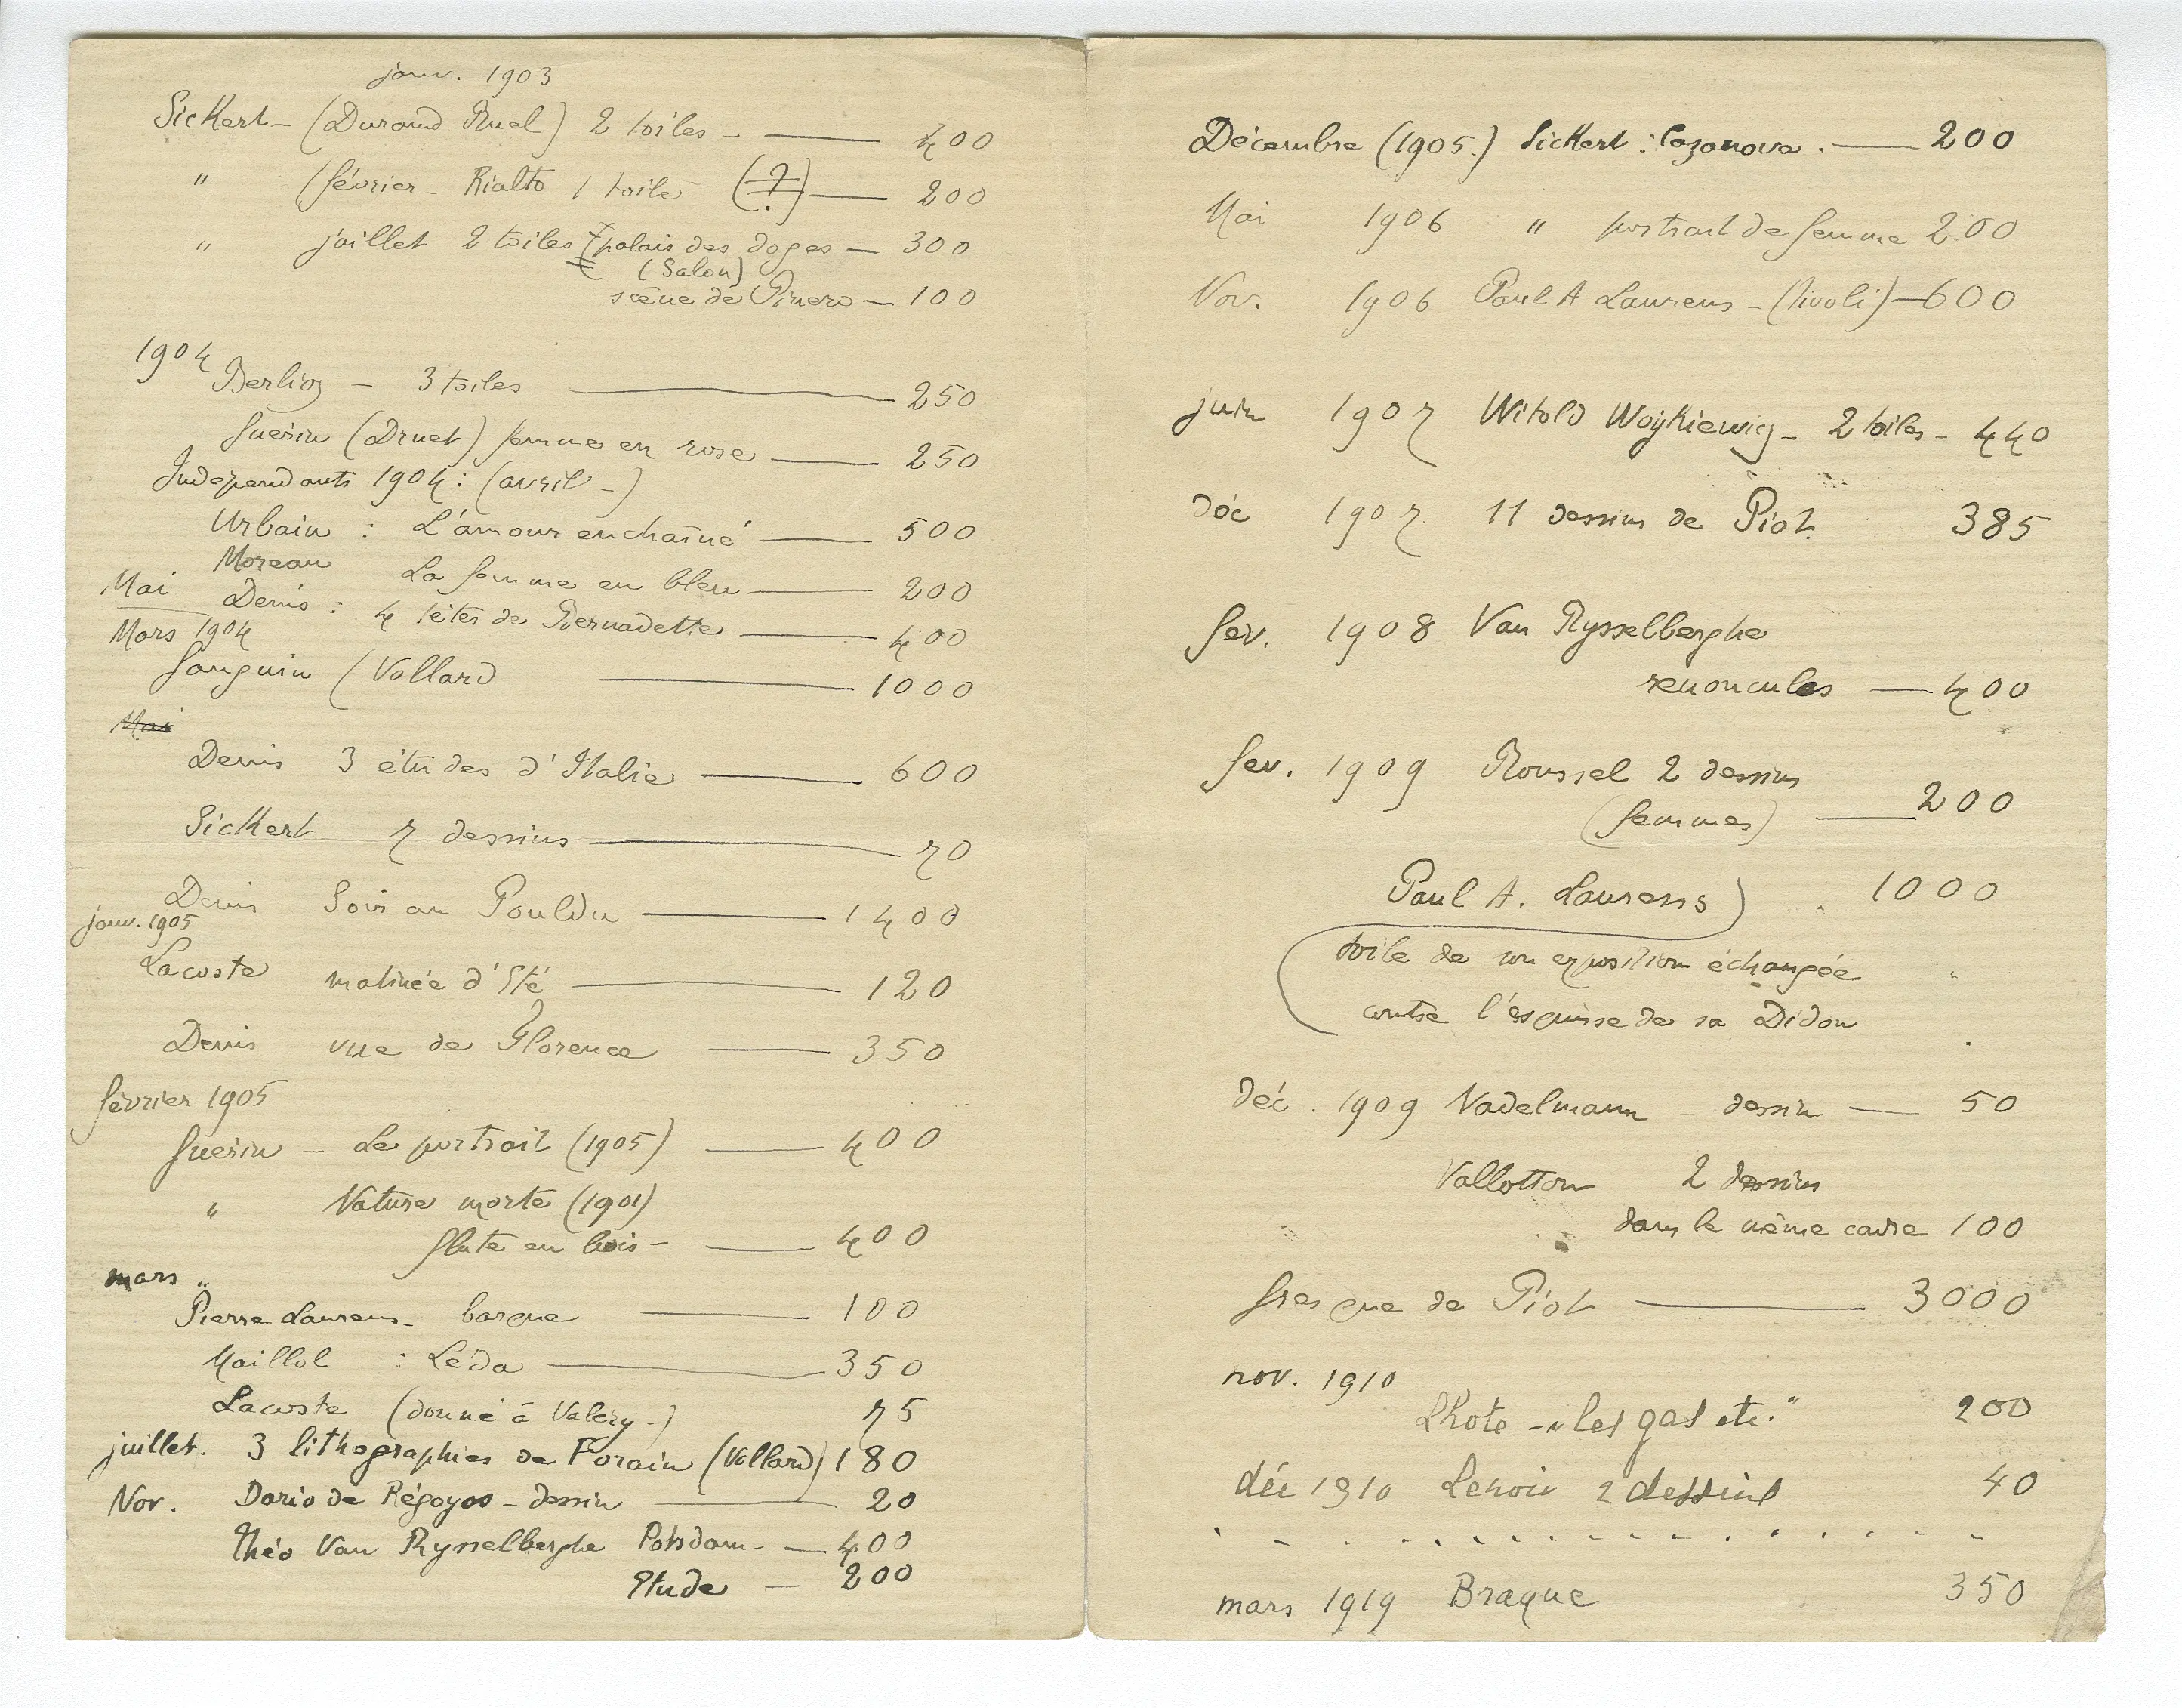 janv. 1903
Sickert - (Durand Ruel) 2 toiles - — 400
" (février - Rialto 1 toile (?) — 200
" juillet 2 toiles (palais des doges — 300
(Salon)
scène de Pinero — 100
1904
Berlioz - 3 toiles — 250
Guérin (Druet) femme en rose — 250
Indépendants 1904 : (avril -)
Urbain : L'amour enchaîné — 500
Moreau La femme en bleu — 200
Mai Denis : 4 têtes de Bernadette — 400
Mars 1904
Gauguin (Vollard — 1000
Mai
Denis 3 études d'Italie — 600
Sickert 7 dessins — 70
Denis Soir au Pouldu — 1400
janv. 1905
Lacoste matinée d'Eté — 120
Denis vue de Florence — 350
février 1905
Guérin - Le portrait (1905) — 400
" Nature morte (1901)
flute en bois - — 400
mars "
Pierre Laurens - barque — 100
Maillol : Léda — 350
Lacoste (donné à Valéry -) 75
juillet. 3 lithographies de Forain (Vollard) 180
Nov. Dario de Régoyos - dessin — 20
Théo Van Rysselberghe Potsdam - — 400
Etude — 200
Décembre (1905.) Sickert : Cazanova . — 200
Mai 1906 " portrait de femme 200
Nov. 1906 Paul A Laurens - (Tivoli) — 600
juin 1907 Witold Wojkiewicz - 2 toiles - 440
déc 1907 11 dessins de Piot. 385
fev. 1908 Van Rysselberghe
renoncules — 400
fev. 1909 Roussel 2 dessins
(femmes) — 200
Paul A. Laurens) 1000
(toile de son exposition échangée
contre l'esquisse de sa Didon
déc. 1909 Nadelmann - dessin — 50
Vallotton 2 dessins
dans le même cadre 100
fresque de Piot — 3000
nov. 1910
Lhote - "les gas etc." 200
déc 1910 Lenoir 2 dessins 40
. - . . . . . . . . . . . . . . . .
mars 1919 Braque 350